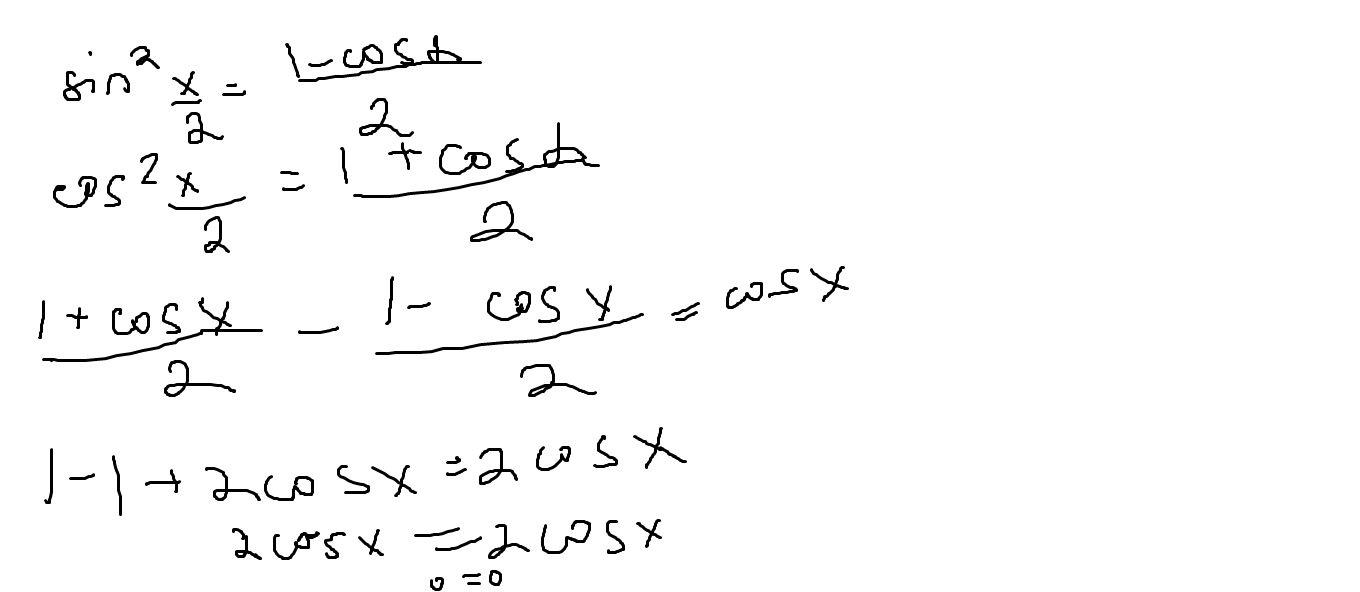 sin² x/2 = (1 - cos α)/2
cos² x/2 = (1 + cos α)/2
(1 + cos x)/2 - (1 - cos x)/2 = cos x
1 - 1 + 2cos x = 2cos x
2cos x = 2cos x
0 = 0